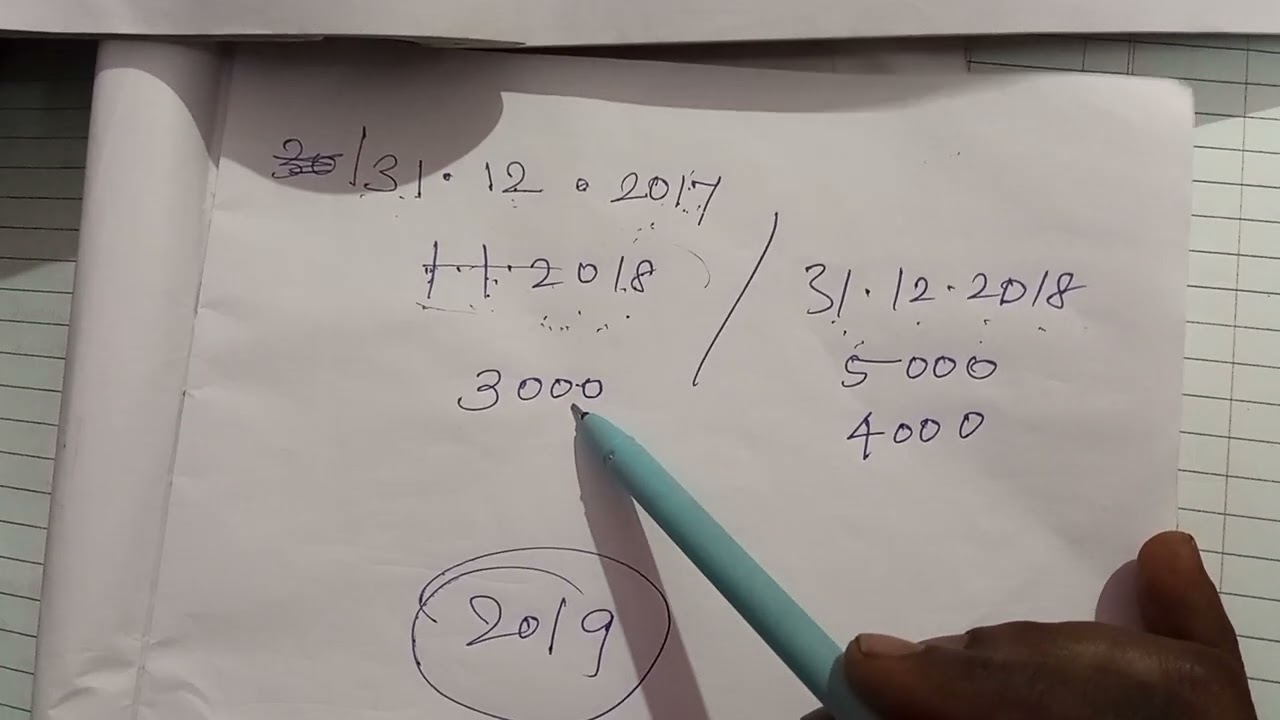 30/31.12.2017
1.1.2018
3000
31.12.2018
5000
4000
2019